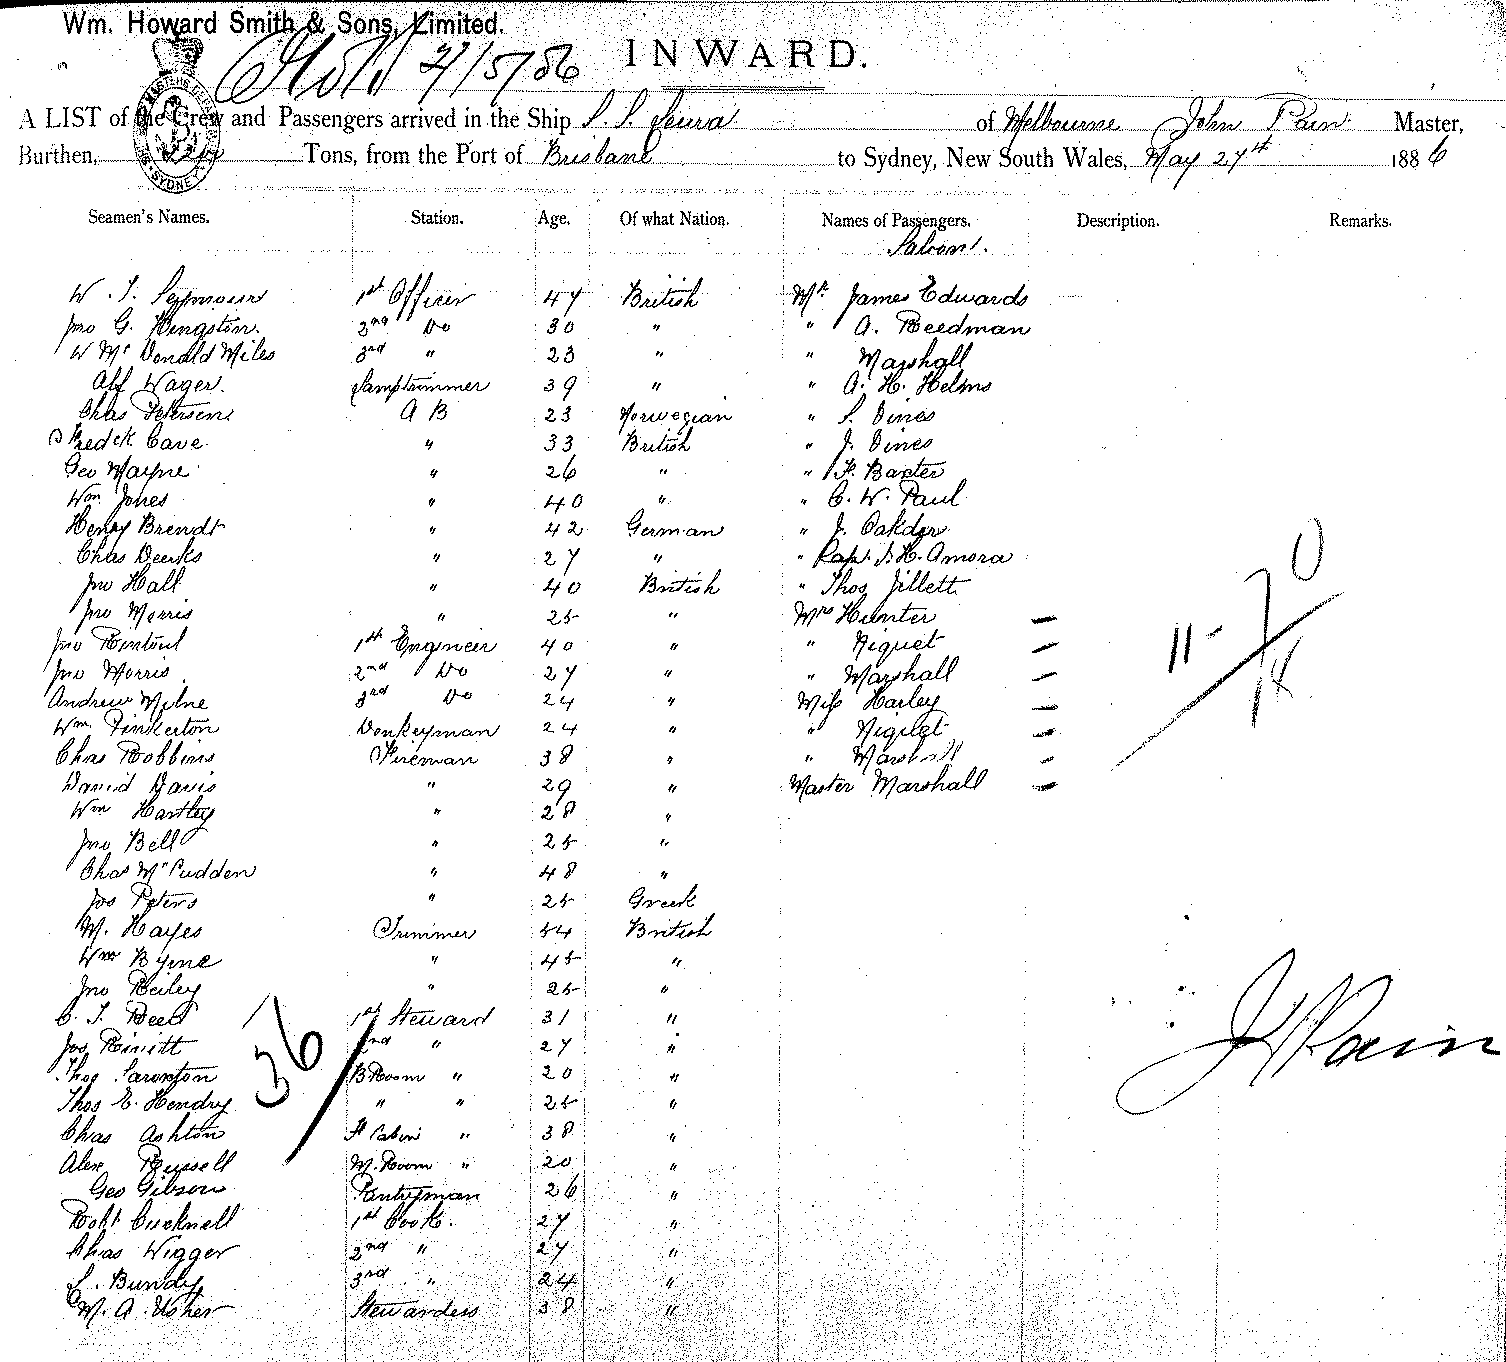 Wm. Howard Smith & Sons, Limited.
27/5/86
INWARD.
A LIST of the Crew and Passengers arrived in the Ship S. S. Leura of Melbourne John Pain Master,
Burthen, Tons, from the Port of Brisbane to Sydney, New South Wales, May 27th 1886
Seamen's Names. Station. Age. Of what Nation. Names of Passengers. Description. Remarks.
Saloon.
W. T. Seymour 1st Officer 47 British Mr. James Edwards
Jno G. Hingston. 2nd Do 30 " " A. Beedman
W Mc Donald Miles 3rd " 23 " " Marshall
Alf Wager. Lamptrimmer 39 " " A. H. Helms
Chas Petersen A B 23 Norwegian " S. Vines
Fredck Cave " 33 British " J. Vines
Geo Mayne " 26 " " F. Baxter
Wm. Jones " 40 " " C. W. Paul
Henry Brendt " 42 German " J. Oakder
Chas Deerks " 27 " " Capt. J. H. Amora
Jno Hall " 40 British " Thos Jillett
Jno Morris " 25 " Mrs Hunter —
Jno Rintoul 1st Engineer 40 " " Niquet —
Jno Morris 2nd Do 27 " " Marshall —
Andrew Milne 3rd Do 24 " Miss Harley —
Wm. Pinkerton Donkeyman 24 " " Niquet —
Chas Robbins Fireman 38 " " Marshall —
David Davis " 29 " Master Marshall —
Wm Hartley " 28 "
Jno Bell " 25 "
Chas McCudden " 48 "
Jos Peters " 25 Greek
M. Hayes Trimmer 54 British
Wm Byrne " 45 "
Jno Reiley " 25 "
C. T. Reed 1st Steward 31 "
Jos 2nd " 27 "
Thos B Room " 20 "
Thos E. Hendry " " 25 "
Chas Ashton F Cabin " 38 "
Alex Russell M. Room " 20 "
Geo Gibson Pantryman 26 "
Robt Cucknell 1st Cook. 27 "
Chas Wigger 2nd " 27 "
S. Bundy 3rd " 24 "
M. A. Usher Stewardess 38 "
36/
11 - 7 0
/18
J Pain